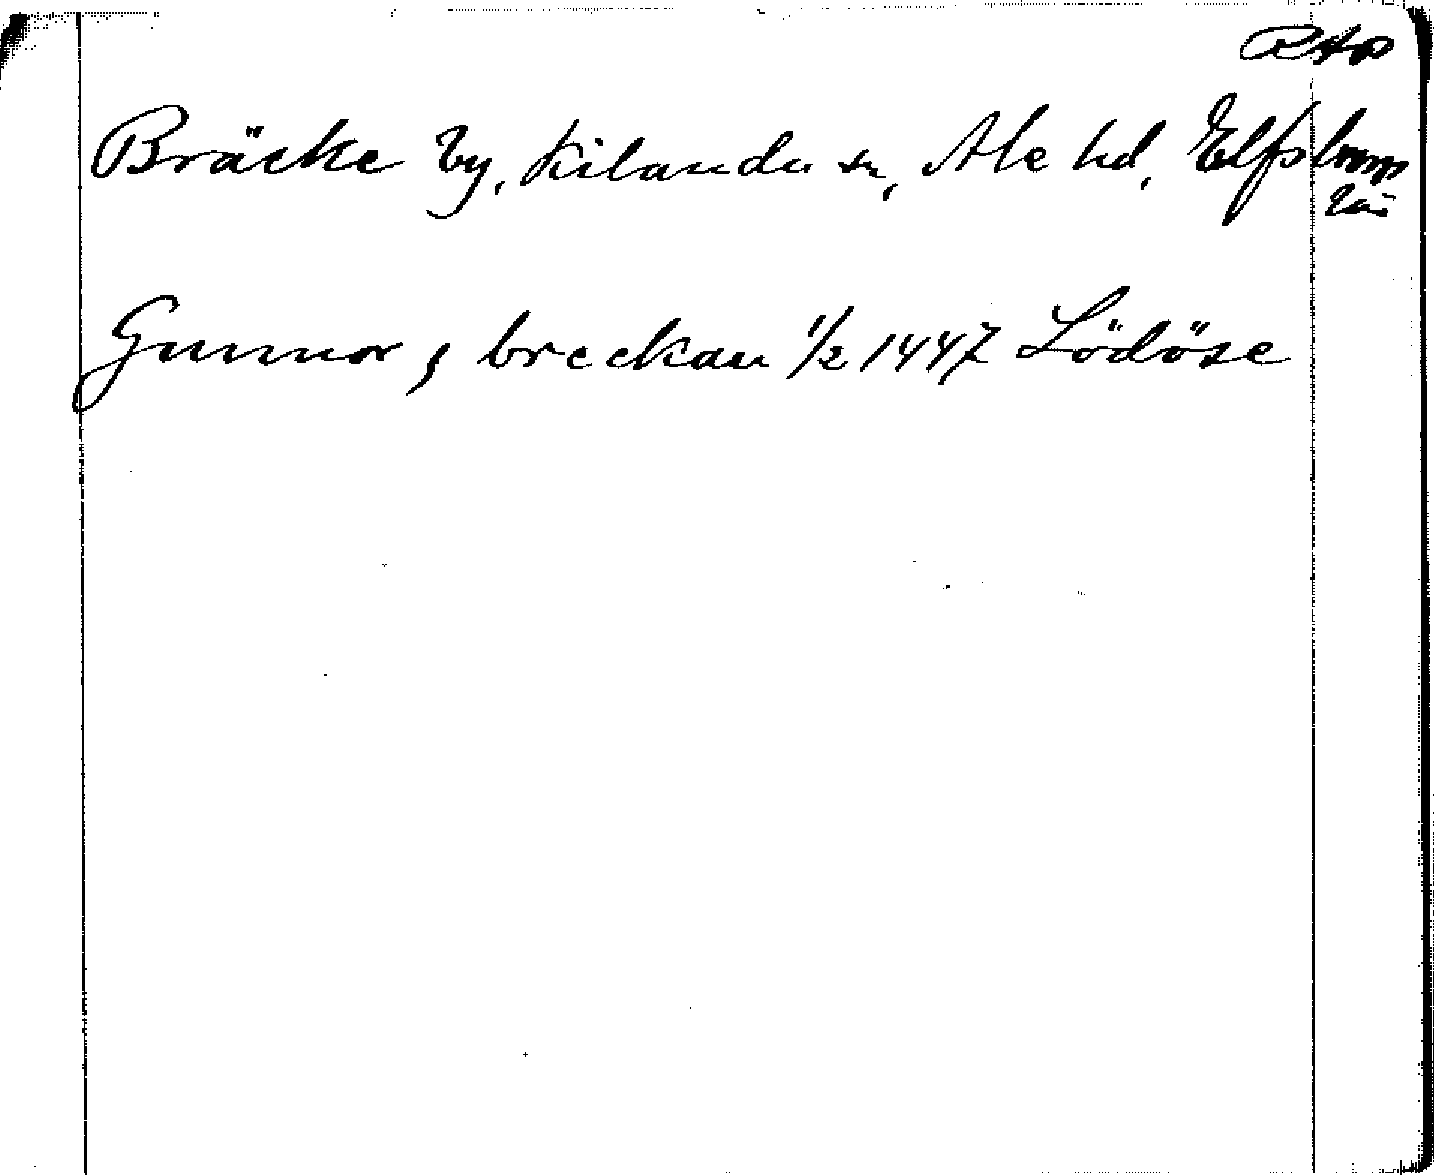 RAp
Bräcke by, Kilanda sn, Ale hd, Elfsborgs
län
Gunnor, breckan 1/2 1447 Lödöse